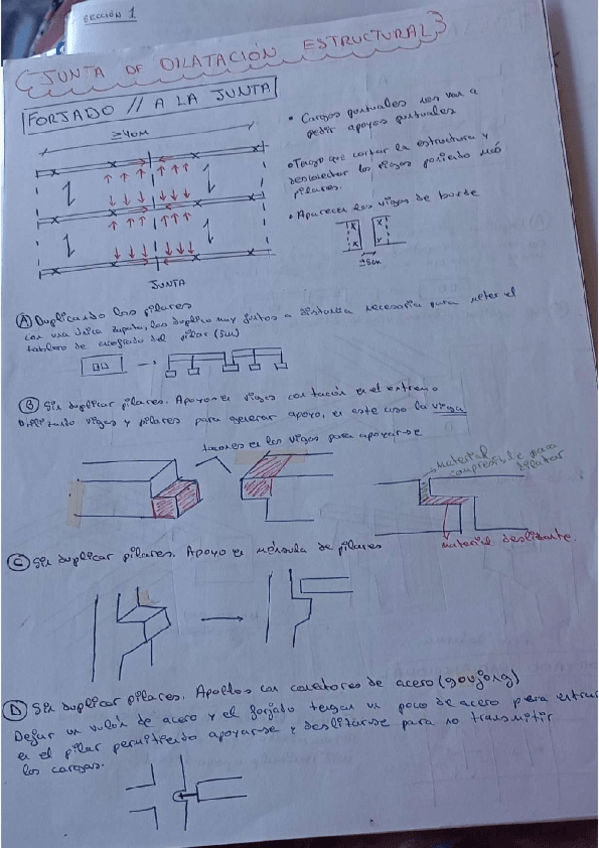 SECCIÓN 1
JUNTA DE DILATACIÓN ESTRUCTURAL
FORJADO // A LA JUNTA
≥40M
• Cargas puntuales nos van a
pedir apoyos puntuales
• Tengo que cortar la estructura y
desconectar las vigas poniendo
pilares.
• Aparecen las vigas de borde
JUNTA
(A) Duplicando los pilares
con una única zapata, los duplico muy juntos a distancia necesaria para meter el
tablero de encofrado del pilar (5cm)
(B) Sin duplicar pilares. Apoyo en vigas con tacón en el extremo
vigas y pilares para generar apoyo, en este caso la viga
tacones en las vigas para apoyarse
Material
compresible para
dilatar
Material deslizante.
(C) Sin duplicar pilares. Apoyo en ménsula de pilares
(D) Sin duplicar pilares. Apoyos con conectores de acero (goujong)
Dejar un vulón de acero y el forjado tengan un poco de acero para entrar
en el pilar permitiendo apoyarse y deslizarse para no transmitir
las cargas.